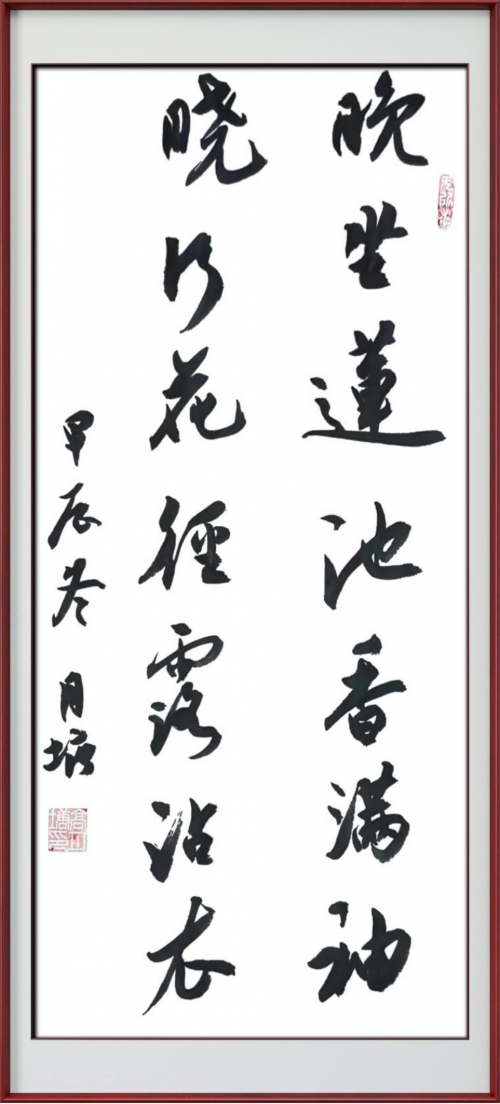 晚坐蓮池香满袖
晓行花徑露沾衣
甲辰冬 月塘